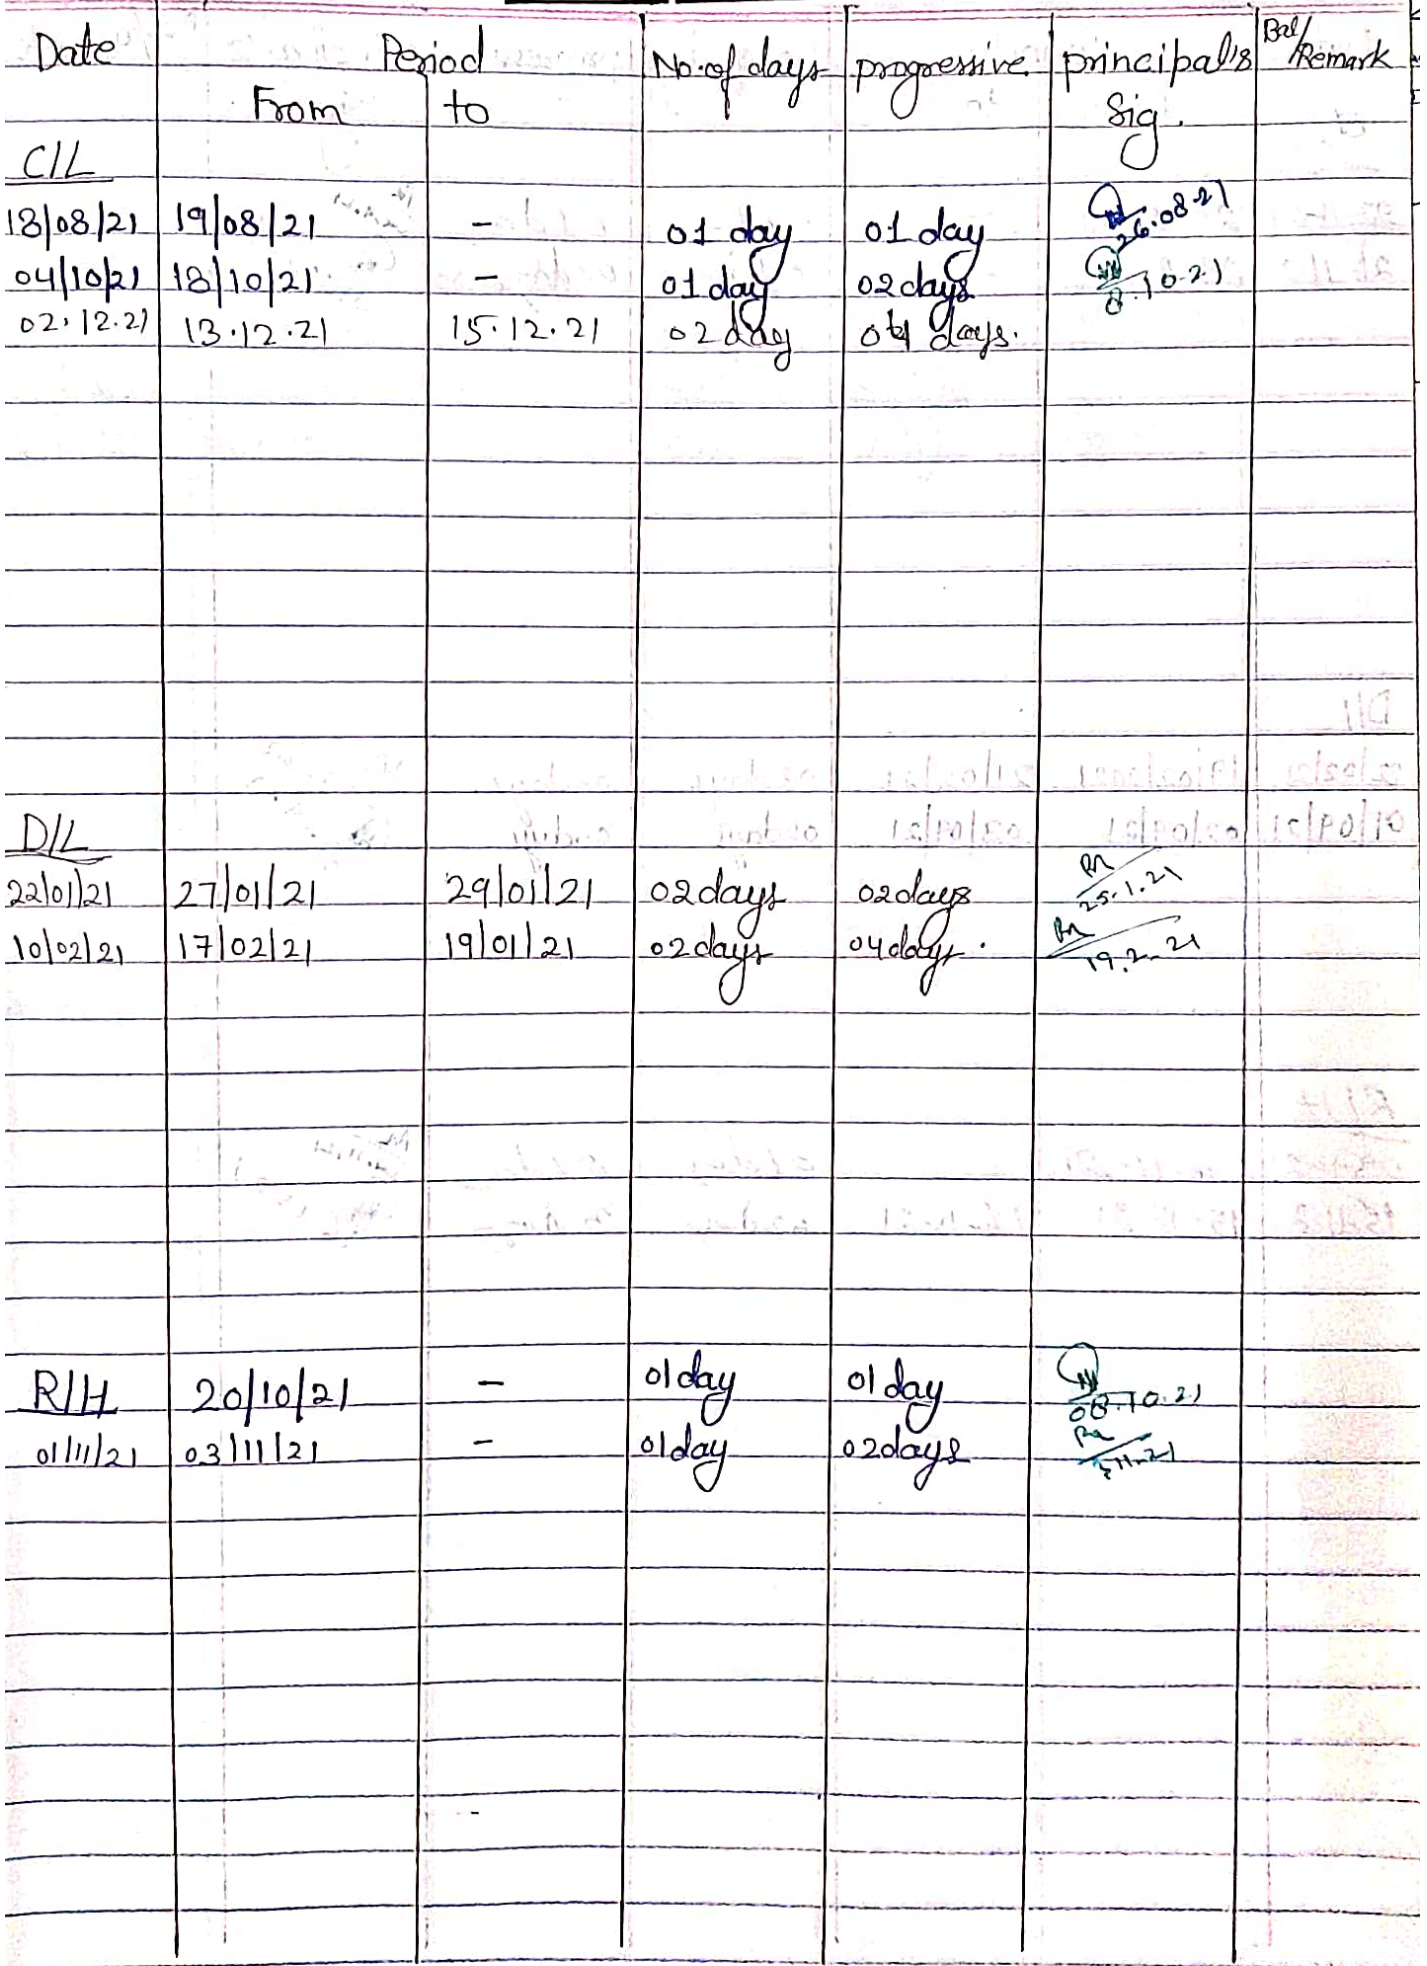 Date Period No. of days progressive principal's Bal/Remark
From to Sig.
C/L
18/08/21 19/08/21 - 01 day 01 day 26.08.21
04/10/21 18/10/21 - 01 day 02 days 8.10.21
02.12.21 13.12.21 15.12.21 02 day 04 days.
D/L
22/01/21 27/01/21 29/01/21 02 days 02 days 25.1.21
10/02/21 17/02/21 19/01/21 02 days 04 days. 19.2.21
R/H 20/10/21 - 01 day 01 day 08.10.21
01/11/21 03/11/21 - 01 day 02 days